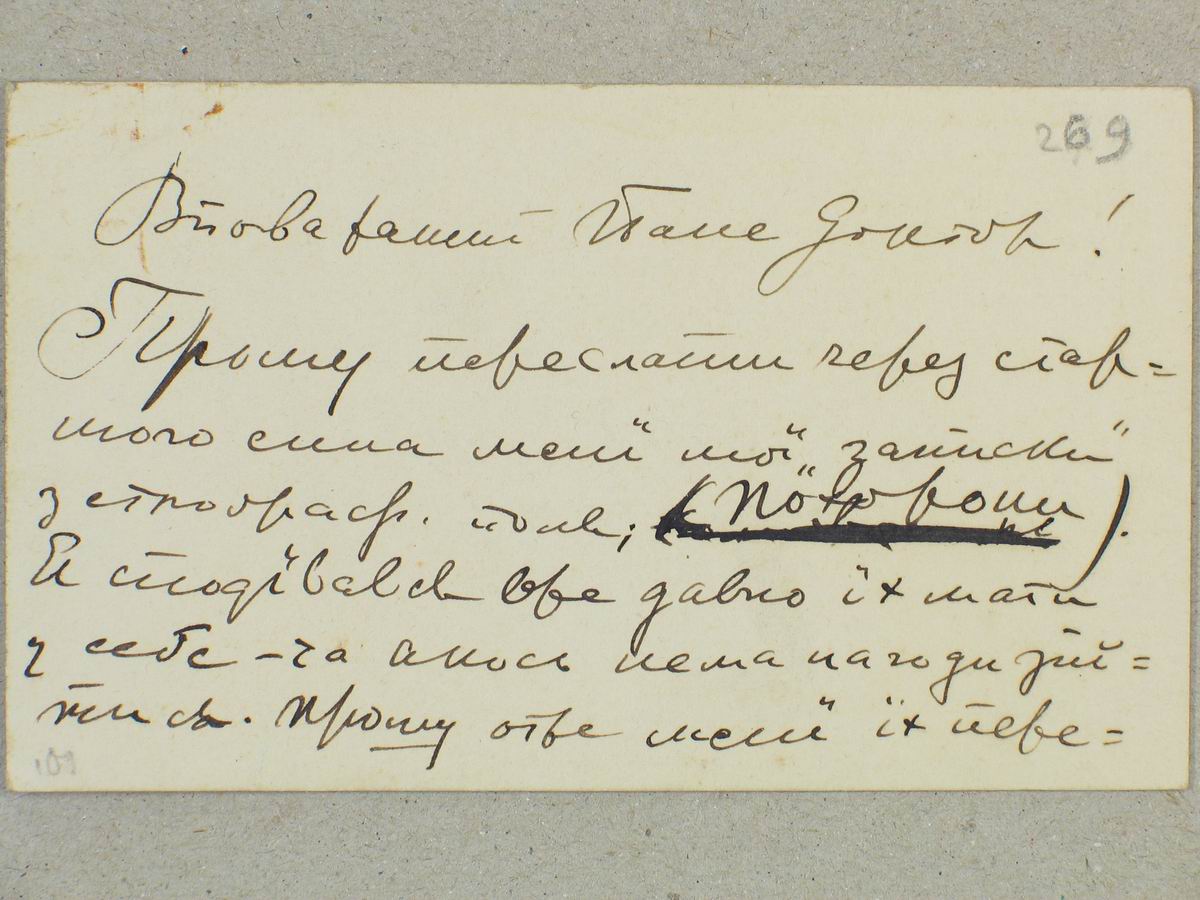 269
Вповажаний Пане Доктор!
Прошу переслати через стар=
шого сина менї мої записки
з етнограф. поля; (Пöхорони).
Я сподївався вже давно їх мати
у себе – та якось нема нагоди зій=
тись. Прошу отже менї їх пере=
101